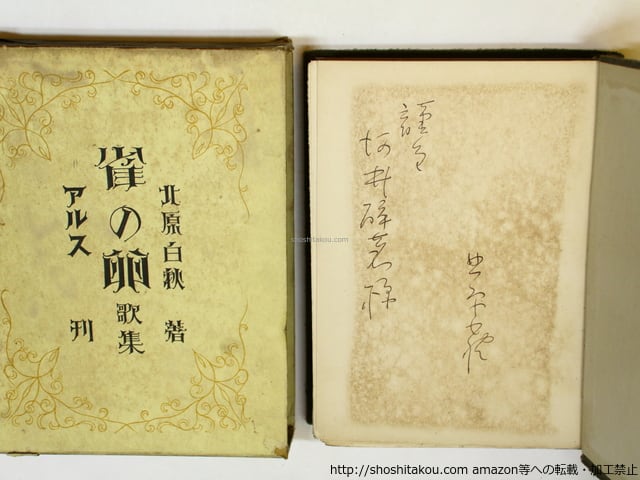 北原白秋 著
雀の卵 歌集
アルス 刊
謹呈
河井醉茗様
shoshitakou.com
http://shoshitakou.com amazon等への転載・加工禁止